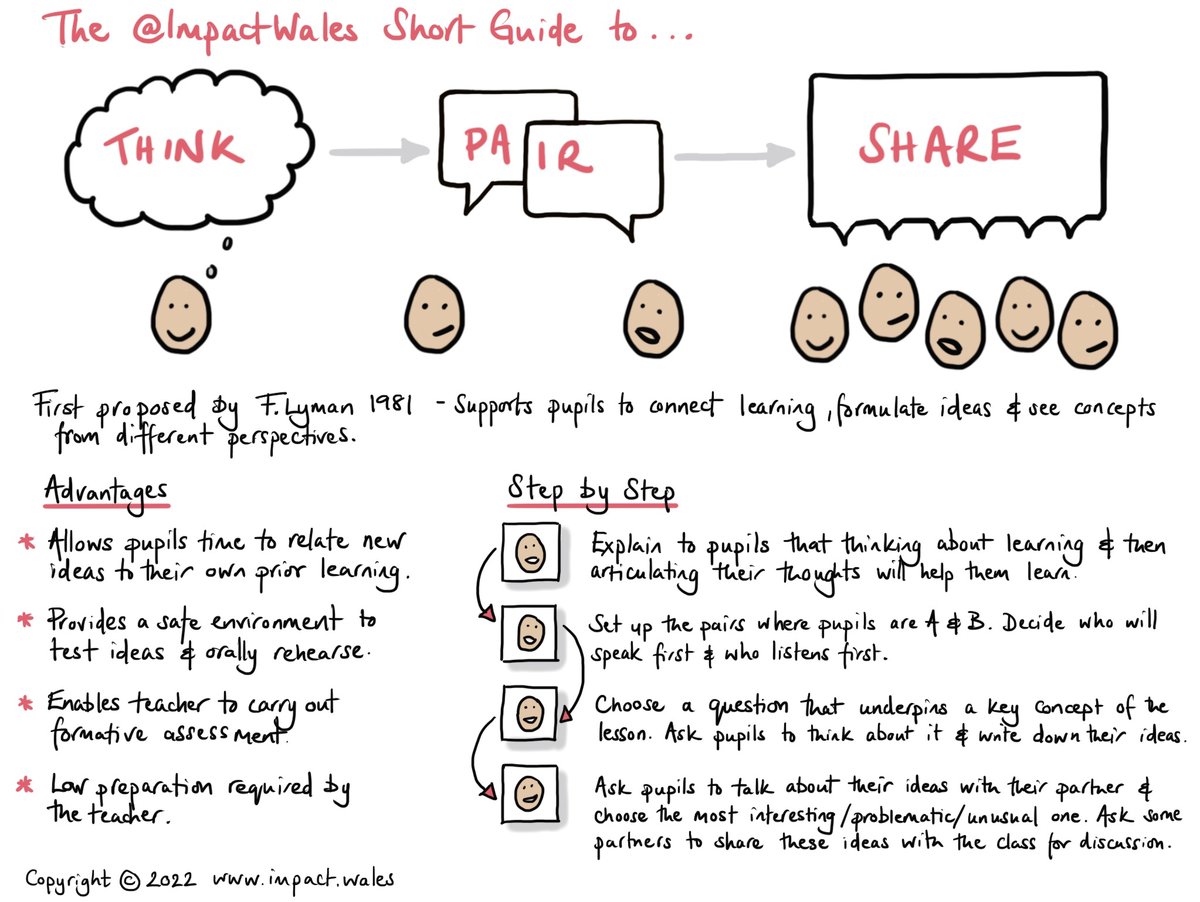 The @ImpactWales Short Guide to...
THINK
PAIR
SHARE
First proposed by F. Lyman 1981 - Supports pupils to connect learning, formulate ideas & see concepts
from different perspectives.
Advantages
* Allows pupils time to relate new
ideas to their own prior learning.
* Provides a safe environment to
test ideas & orally rehearse.
* Enables teacher to carry out
formative assessment.
* Low preparation required by
the teacher.
Step by Step
Explain to pupils that thinking about learning & then
articulating their thoughts will help them learn.
Set up the pairs where pupils are A & B. Decide who will
speak first & who listens first.
Choose a question that underpins a key concept of the
lesson. Ask pupils to think about it & write down their ideas.
Ask pupils to talk about their ideas with their partner &
choose the most interesting/problematic/unusual one. Ask some
partners to share these ideas with the class for discussion.
Copyright © 2022 www.impact.wales